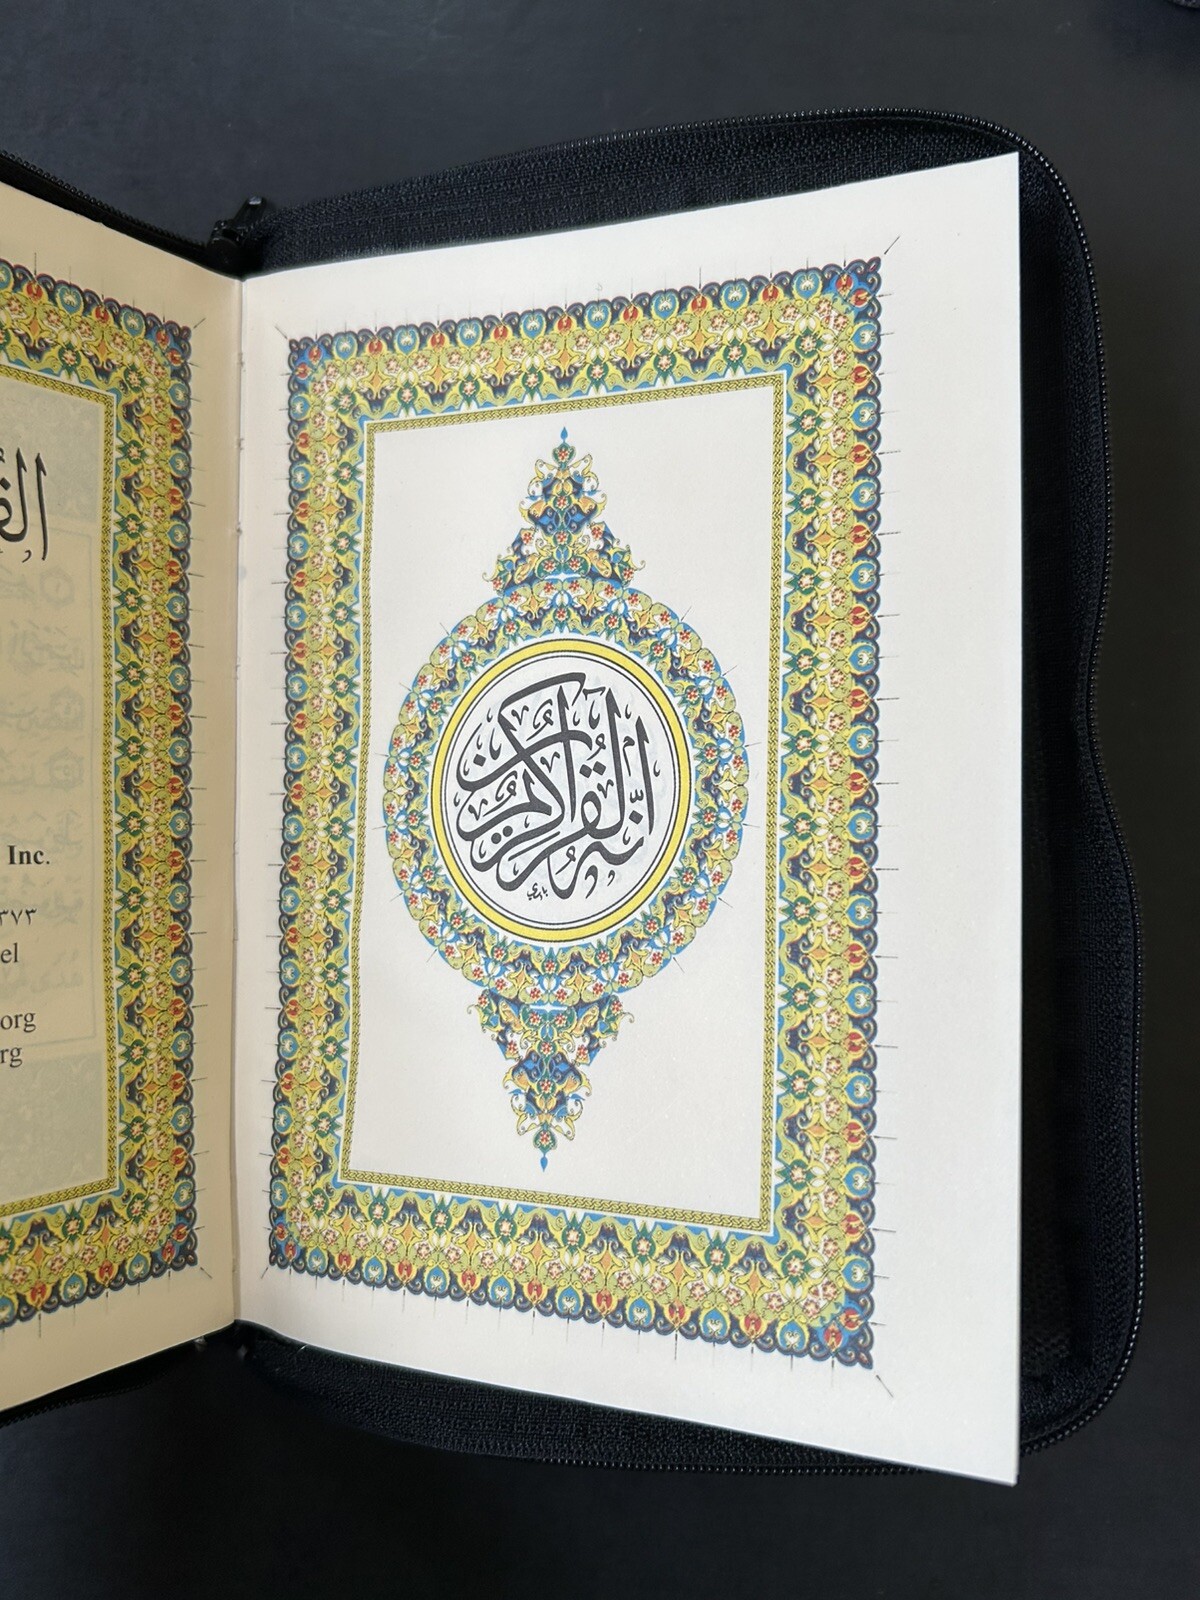 إنه لقرآن كريم
الق
Inc.
٣٧٣
el
org
rg